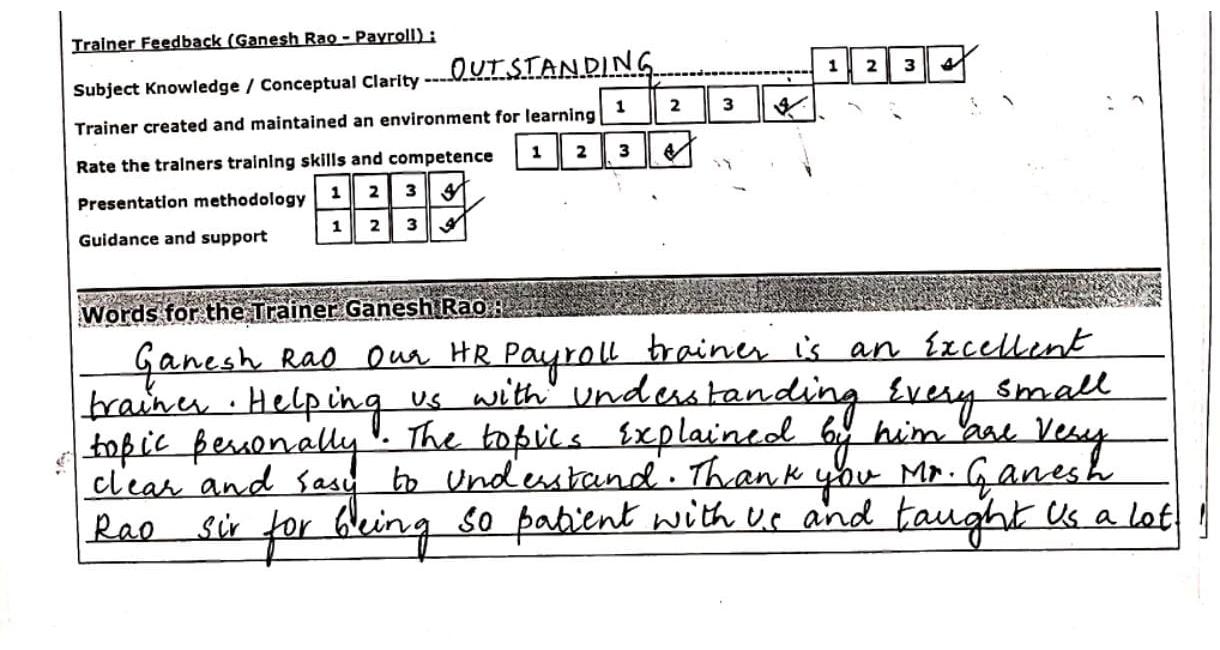 Trainer Feedback (Ganesh Rao - Payroll) :
Subject Knowledge / Conceptual Clarity ---OUTSTANDING--- 1 2 3 4
Trainer created and maintained an environment for learning 1 2 3 4
Rate the trainers training skills and competence 1 2 3 4
Presentation methodology 1 2 3 4
Guidance and support 1 2 3 4
Words for the Trainer Ganesh Rao :
Ganesh Rao Our HR Payroll trainer is an Excellent
trainer. Helping us with Understanding Every small
topic personally. The topics Explained by him are Very
clear and Easy to Understand. Thank you Mr. Ganesh
Rao Sir for being so patient with Us and taught Us a lot!